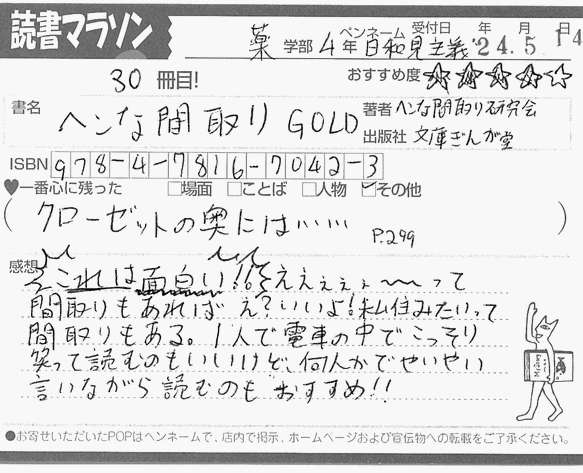 読書マラソン
薬学部 4年 ペンネーム 日和見主義 受付日 '24.5.14 年 月 日
30冊目! おすすめ度 ☆☆☆☆☆
書名 ヘンな間取り GOLD
著者 ヘンな間取り研究会
出版社 文庫ぎんが堂
ISBN 978-4-7816-7042-3
♥一番心に残った □場面 □ことば □人物 ☑その他
(クローゼットの奥には…… P.299)
感想 これは面白い!! えええぇぇ、〜〜って
間取りもあれば え?いいよ!私住みたいって
間取りもある。1人で電車の中でこっそり
笑って読むのもいいけど、何人かでやいやい
言いながら読むのもおすすめ!!
●お寄せいただいたPOPはペンネームで、店内で掲示、ホームページおよび宣伝物への転載をご了承ください。